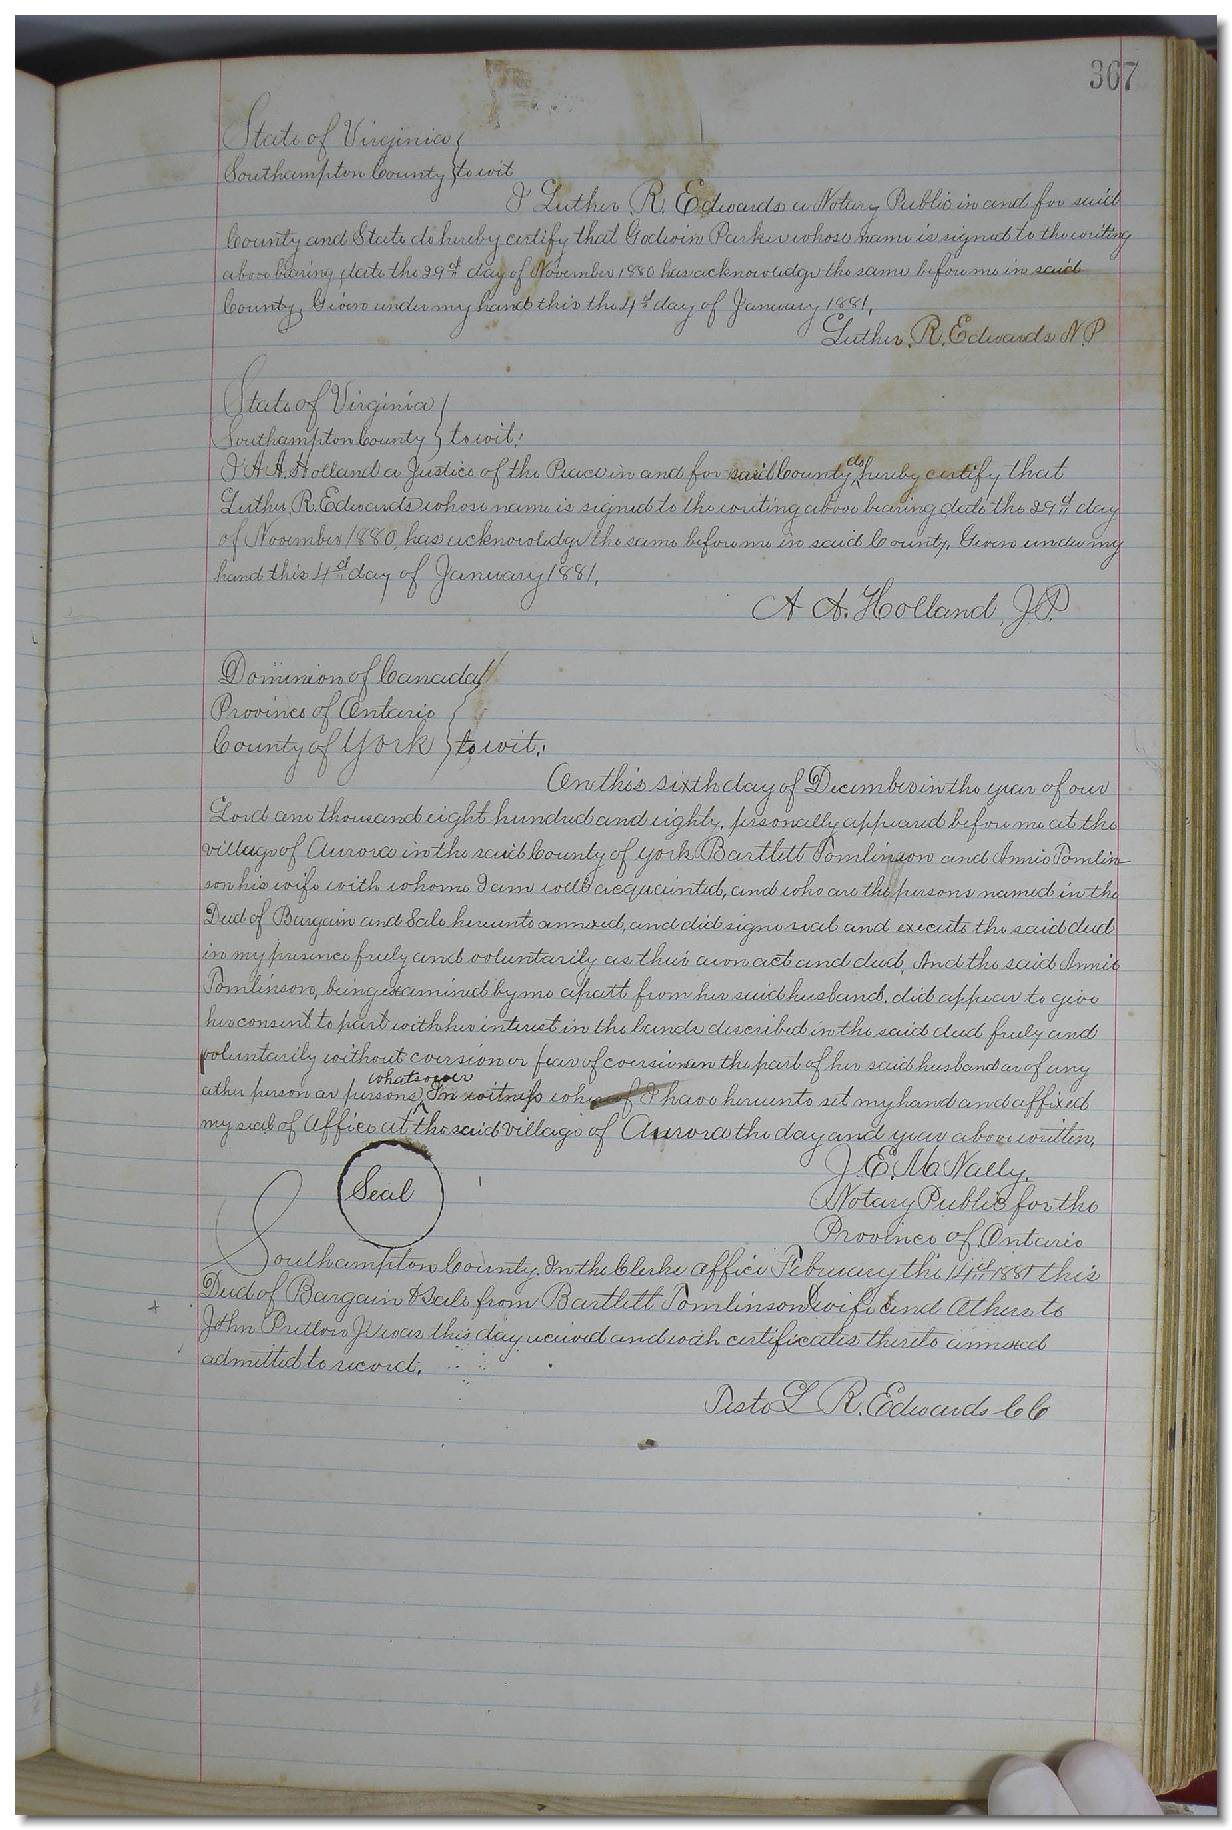 367
State of Virginia
Southampton County to wit
I Luther R. Edwards a Notary Public in and for said
County and State do hereby certify that Godwin Parker whose name is signed to the writing
above bearing date the 29th day of November 1880 has acknowledge the same before me in said
County, Given under my hand this the 4th day of January 1881.
Luther. R. Edwards N.P
State of Virginia
Southampton County to wit:
I A A. Holland a Justice of the Peace in and for said County do hereby certify that
Luther, R. Edwards whose name is signed to the writing above bearing date the 29th day
of November 1880, has acknowledge the same before me in said County, Given under my
hand this 4th day of January 1881.
A A. Holland, J.P.
Dominion of Canada
Province of Ontario
County of York to wit:
On this sixth day of December in the year of our
Lord one thousand eight hundred and eighty, personally appeared before me at the
village of Aurora in the said County of York Bartlett Tomlinson and Annie Tomlin-
son his wife with whome I am well acquainted, and who are the persons named in the
Deed of Bargain and Sale hereunto annexed, and did signe seal and execute the said deed
in my presence freely and voluntarily as their own act and deed, And the said Annie
Tomlinson, being examined by me apart from her said husband, did appear to give
her consent to part with her interest in the lands described in the said deed freely and
voluntarily without coersion or fear of coersion on the part of her said husband or of any
other person or persons whatsoever In witness whereof I have hereunto set my hand and affixed
my seal of office at the said village of Aurora the day and year above written.
J. E. McNally.
Seal
Notary Public for the
Province of Ontario
Southampton County. In the Clerks office February the 14th 1881 this
Deed of Bargain & Sale from Bartlett Tomlinson & wife and Others to
John Pretlow Jr was this day received and with certificates thereto annexed
admitted to record.
Teste L R. Edwards CC